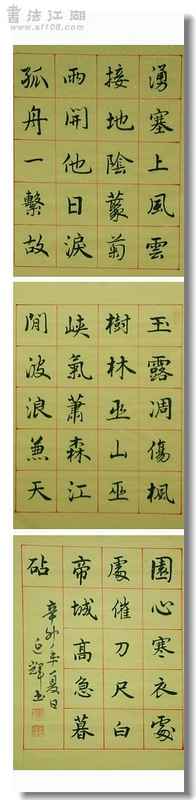 书法江湖
www.sf108.com
湧塞上風雲
接地陰藂菊
兩開他日淚
孤舟一繫故
玉露凋傷楓
樹林巫山巫
峽氣蕭森江
間波浪兼天
園心寒衣處
處催刀尺白
帝城高急暮
砧
辛卯年夏日
輝書